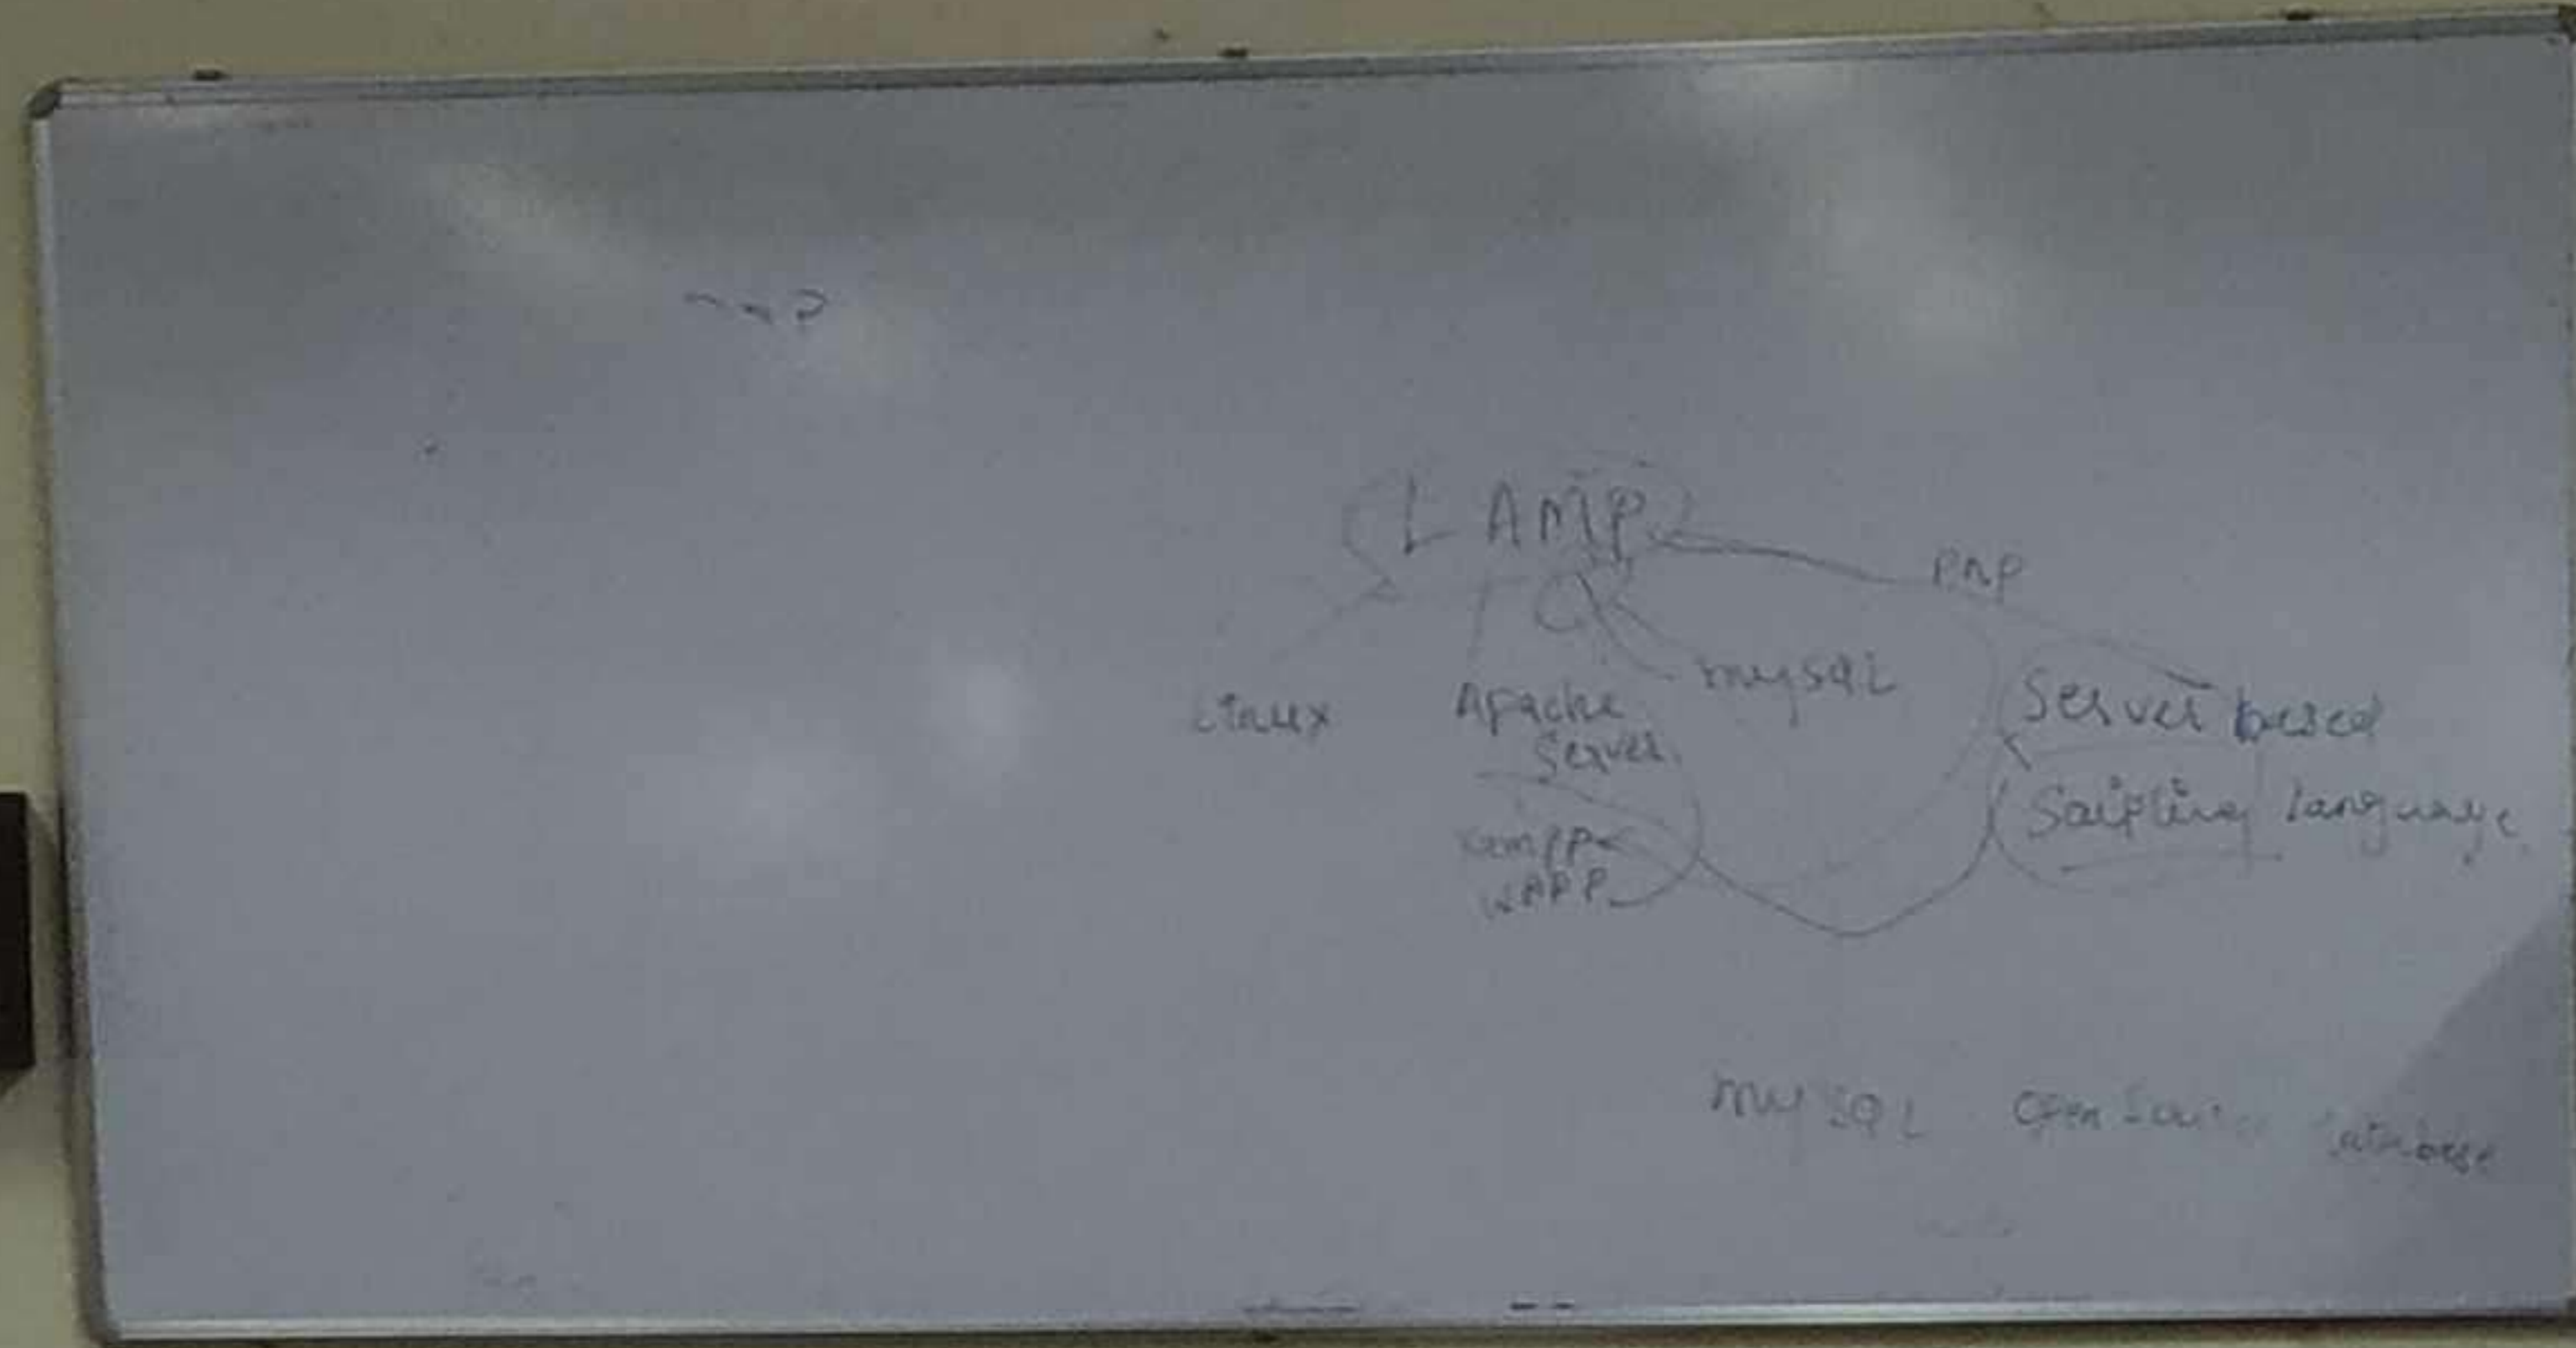 LAMP
PHP
Linux
Apache
Server.
mysql
Server based
Scripting language.
xampp
WAPP
MySQL Open Source Database